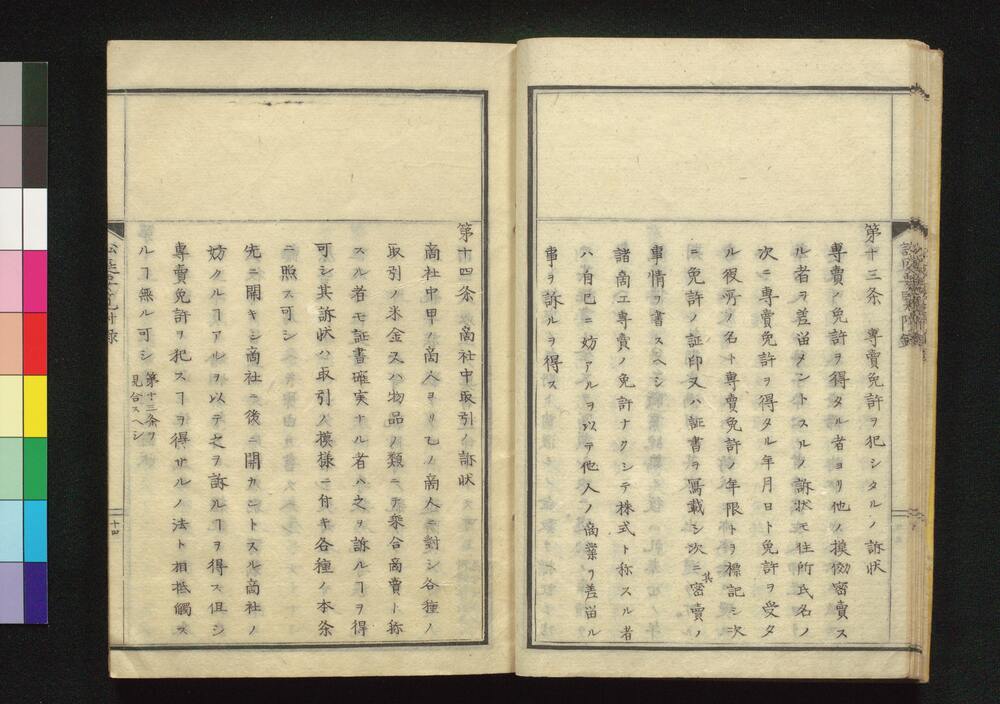 第十三条 専賣免許ヲ犯シタルノ訴状
専賣ノ免許ヲ得タル者ヨリ他ノ摸倣密賣ス
ル者ヲ差留タントスルノ訴状モ住所氏名ノ
次ニ専賣免許ヲ得タル年月日ト免許ヲ受タ
ル役所ノ名ト専賣免許ノ年限トヲ標記シ次
ニ免許ノ証印又ハ証書ヲ寫載シ次ニ其密賣ノ
事情ヲ書スヘシ
諸商工専賣ノ免許ナクシテ株式ト称スル者
ハ自己ニ妨アルヲ以テ他人ノ商業ヲ差留ル
事ヲ訴ルヲ得ス
第十四条 商社中取引ノ訴状
商社中甲ノ商人ヨリ乙ノ商人ニ對シ各種ノ
取引ノ米金又ハ物品ノ類ニテ衆合商賣ト称
スル者モ証書確実ナル者ハ之ヲ訴ルヿヲ得
可シ其訴状ハ取引ノ摸様ニ付キ各種ノ本条
ニ照ス可シ
先ニ開キシ商社ニ後ニ開カントスル商社ノ
妨クルヿアルヲ以テ之ヲ訴ルヿヲ得ス但シ
専賣免許ヲ犯スヿヲ得サルノ法ト相抵觸ス
ルヿ無ル可シ
第十三条ヲ
見合スヘシ
十四